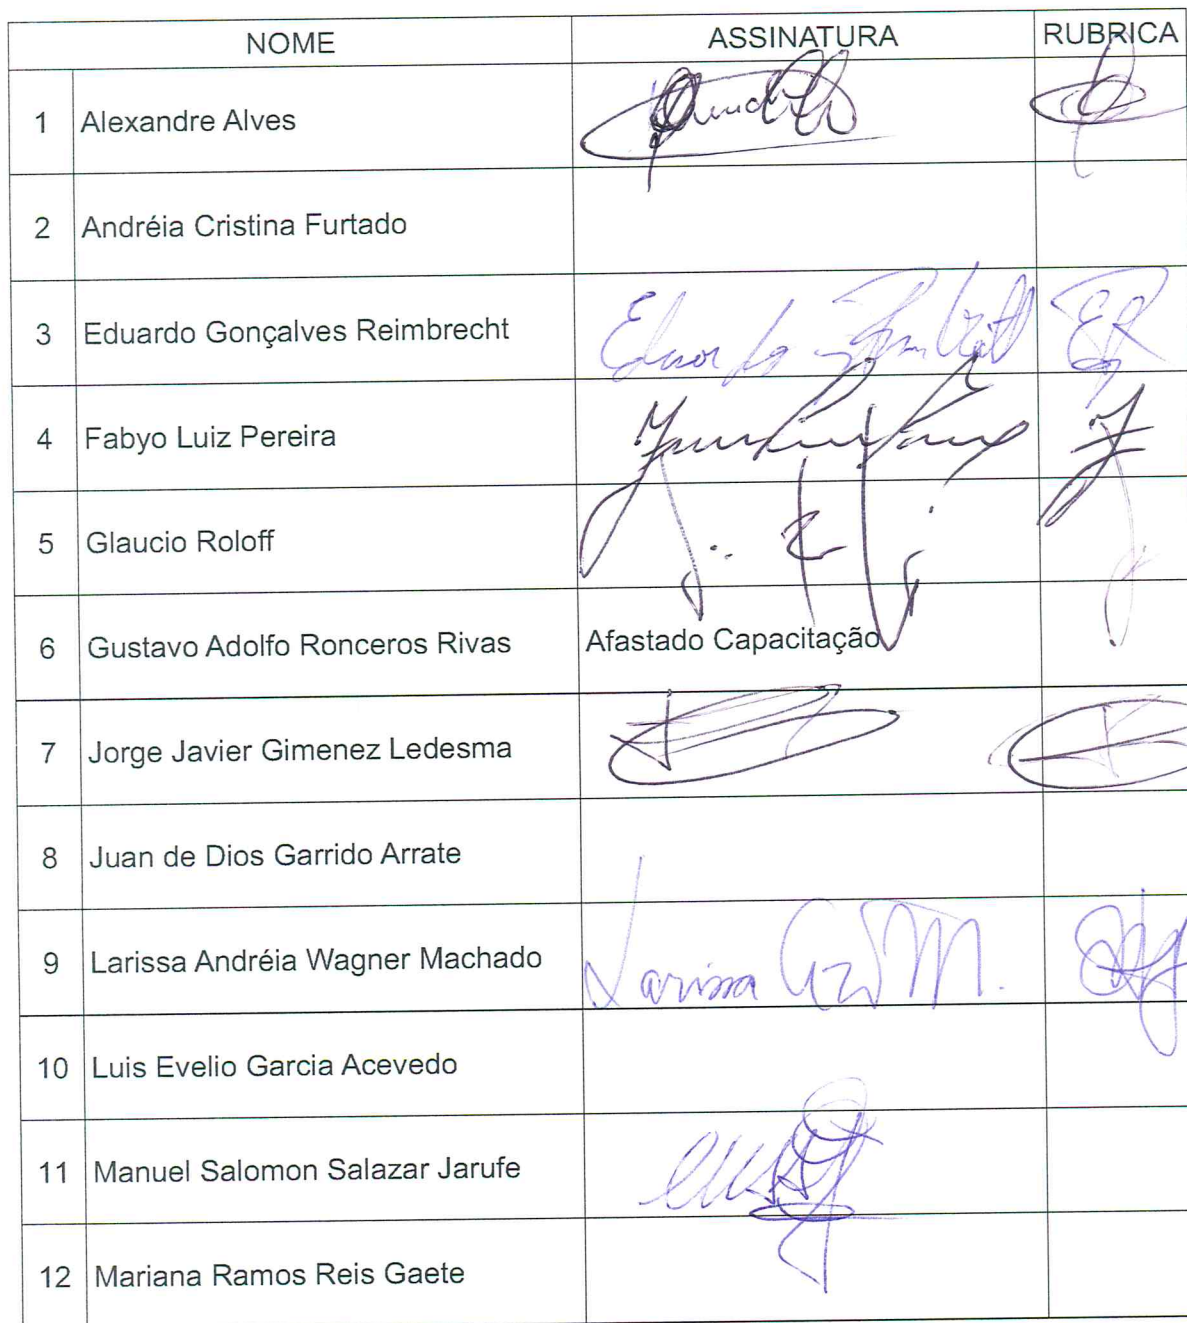 NOME ASSINATURA RUBRICA
1 Alexandre Alves
2 Andréia Cristina Furtado
3 Eduardo Gonçalves Reimbrecht Eduardo
4 Fabyo Luiz Pereira
5 Glaucio Roloff
6 Gustavo Adolfo Ronceros Rivas Afastado Capacitação
7 Jorge Javier Gimenez Ledesma
8 Juan de Dios Garrido Arrate
9 Larissa Andréia Wagner Machado Larissa
10 Luis Evelio Garcia Acevedo
11 Manuel Salomon Salazar Jarufe
12 Mariana Ramos Reis Gaete